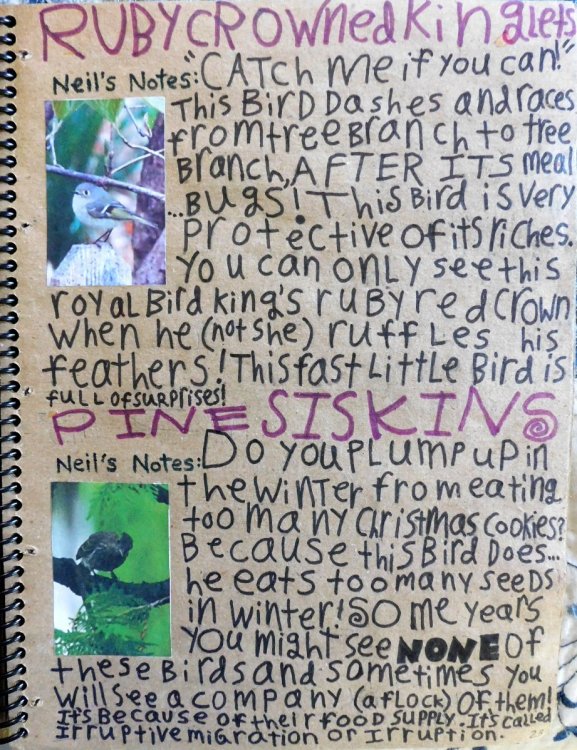 RUBYCROWNEDKinglets
Neil's Notes: "CATCh Me if you can!"
This BirD Dashes and races
from tree Branch to tree
Branch, AFTER ITS meal
...BUgS! This Bird is very
protective of its riches.
You can only see this
royaL Bird king's ruby red crown
when he (not she) ruffLes his
feathers! This fast LittLe Bird is
fULL OF SURPRISES!
PINE SISKINS
Neil's Notes: Do you PLUMP UP in
the winter from eating
too many Christmas cookies?
Because this Bird Does...
he eats too many SeeDS
in winter! Some years
you might see NONE Of
these Birds and sometimes you
Will see a company (a flock) Of them!
It's Because of their food supply. It's called
Irruptive migration or Irruption.